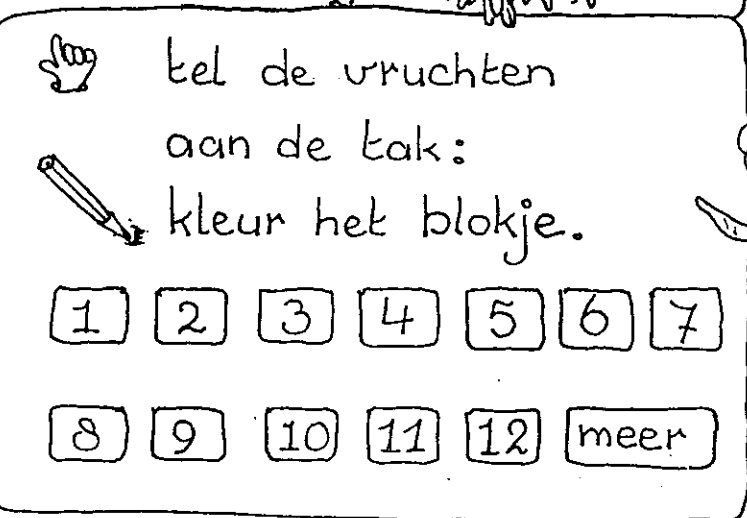 tel de vruchten
aan de tak:
kleur het blokje.
1 2 3 4 5 6 7
8 9 10 11 12 meer